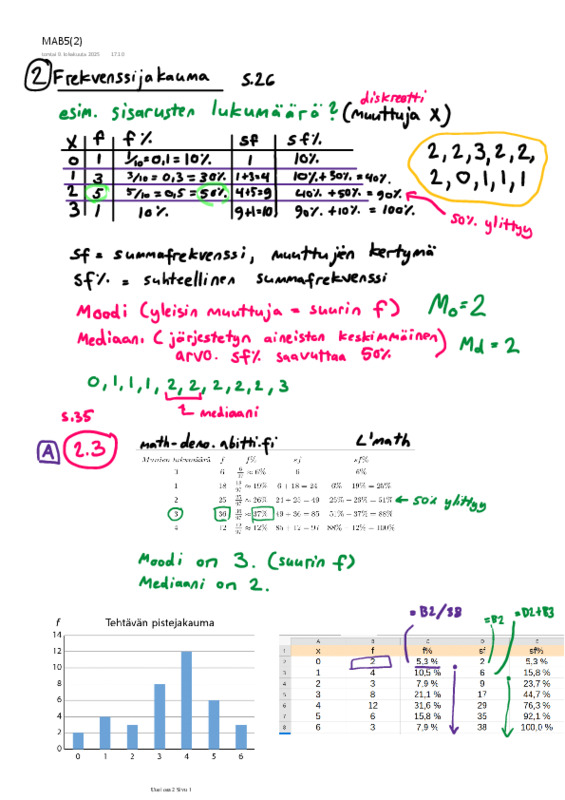 MAB5(2)
torstai 9. lokakuuta 2025 17.10
2 Frekvenssijakauma s.26
esim. sisarusten lukumäärä? (muuttuja x)
diskreetti
x f f% sf sf%
0 1 1/10 = 0,1 = 10% 1 10%
1 3 3/10 = 0,3 = 30% 1+3=4 10%+30% = 40%
2 5 5/10 = 0,5 = 50% 4+5=9 40% +50% = 90%
3 1 10% 9+1=10 90% +10% = 100%
2,2,3,2,2,
2,0,1,1,1
50% ylittyy
sf = summafrekvenssi, muuttujen kertymä
sf% = suhteellinen summafrekvenssi
Moodi (yleisin muuttuja = suurin f) Mo=2
Mediaani (järjestetyn aineiston keskimmäinen
arvo. sf% saavuttaa 50%) Md = 2
0,1,1,1,2,2,2,2,2,3
mediaani
s.35
A 2.3
math-demo.abitti.fi L'math
f f% sf sf%
6 ≈ 6% 6 6%
1 18 ≈ 19% 6 + 18 = 24 6% + 19% = 25%
2 25 ≈ 26% 24 + 25 = 49 25% + 26% = 51% ← 50% ylittyy
3 36 ≈ 37% 49 + 36 = 85 51% + 37% = 88%
4 12 ≈ 12% 85 + 12 = 97 88% + 12% = 100%
Moodi on 3. (suurin f)
Mediaani on 2.
f Tehtävän pistejakauma
14
12
10
8
6
4
2
0
0 1 2 3 4 5 6
=B2/38
=B2
=D2+B3
A B C D E
1 x f f% sf sf%
2 0 2 5,3 % 2 5,3 %
3 1 4 10,5 % 6 15,8 %
4 2 3 7,9 % 9 23,7 %
5 3 8 21,1 % 17 44,7 %
6 4 12 31,6 % 29 76,3 %
7 5 6 15,8 % 35 92,1 %
8 6 3 7,9 % 38 100,0 %
Uusi osa 2 Sivu 1